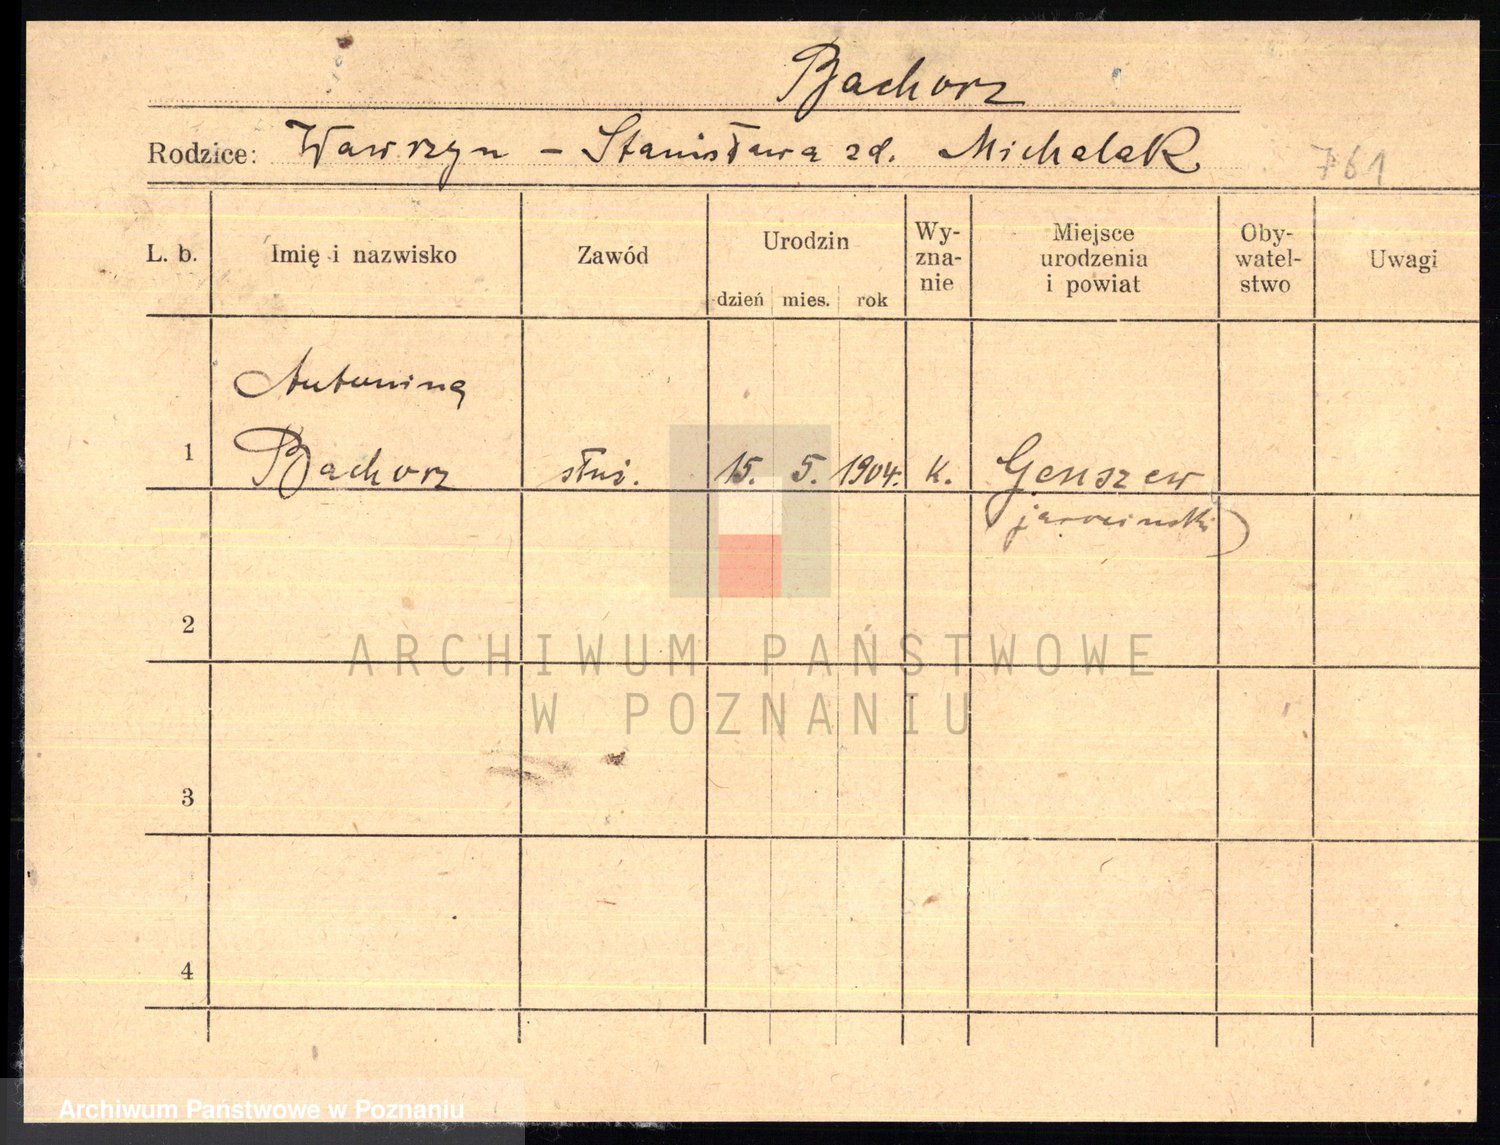 Bachorz
Rodzice: Wawrzyn – Stanisława zd. Michalak
761
L. b. Imię i nazwisko Zawód Urodzin dzień mies. rok Wy-zna-nie Miejsce urodzenia i powiat Oby-watel-stwo Uwagi
Antonina
1 Bachorz służ. 15. 5. 1904. k. Genszew
jarociński
2
ARCHIWUM PAŃSTWOWE
W POZNANIU
3
4
Archiwum Państwowe w Poznaniu